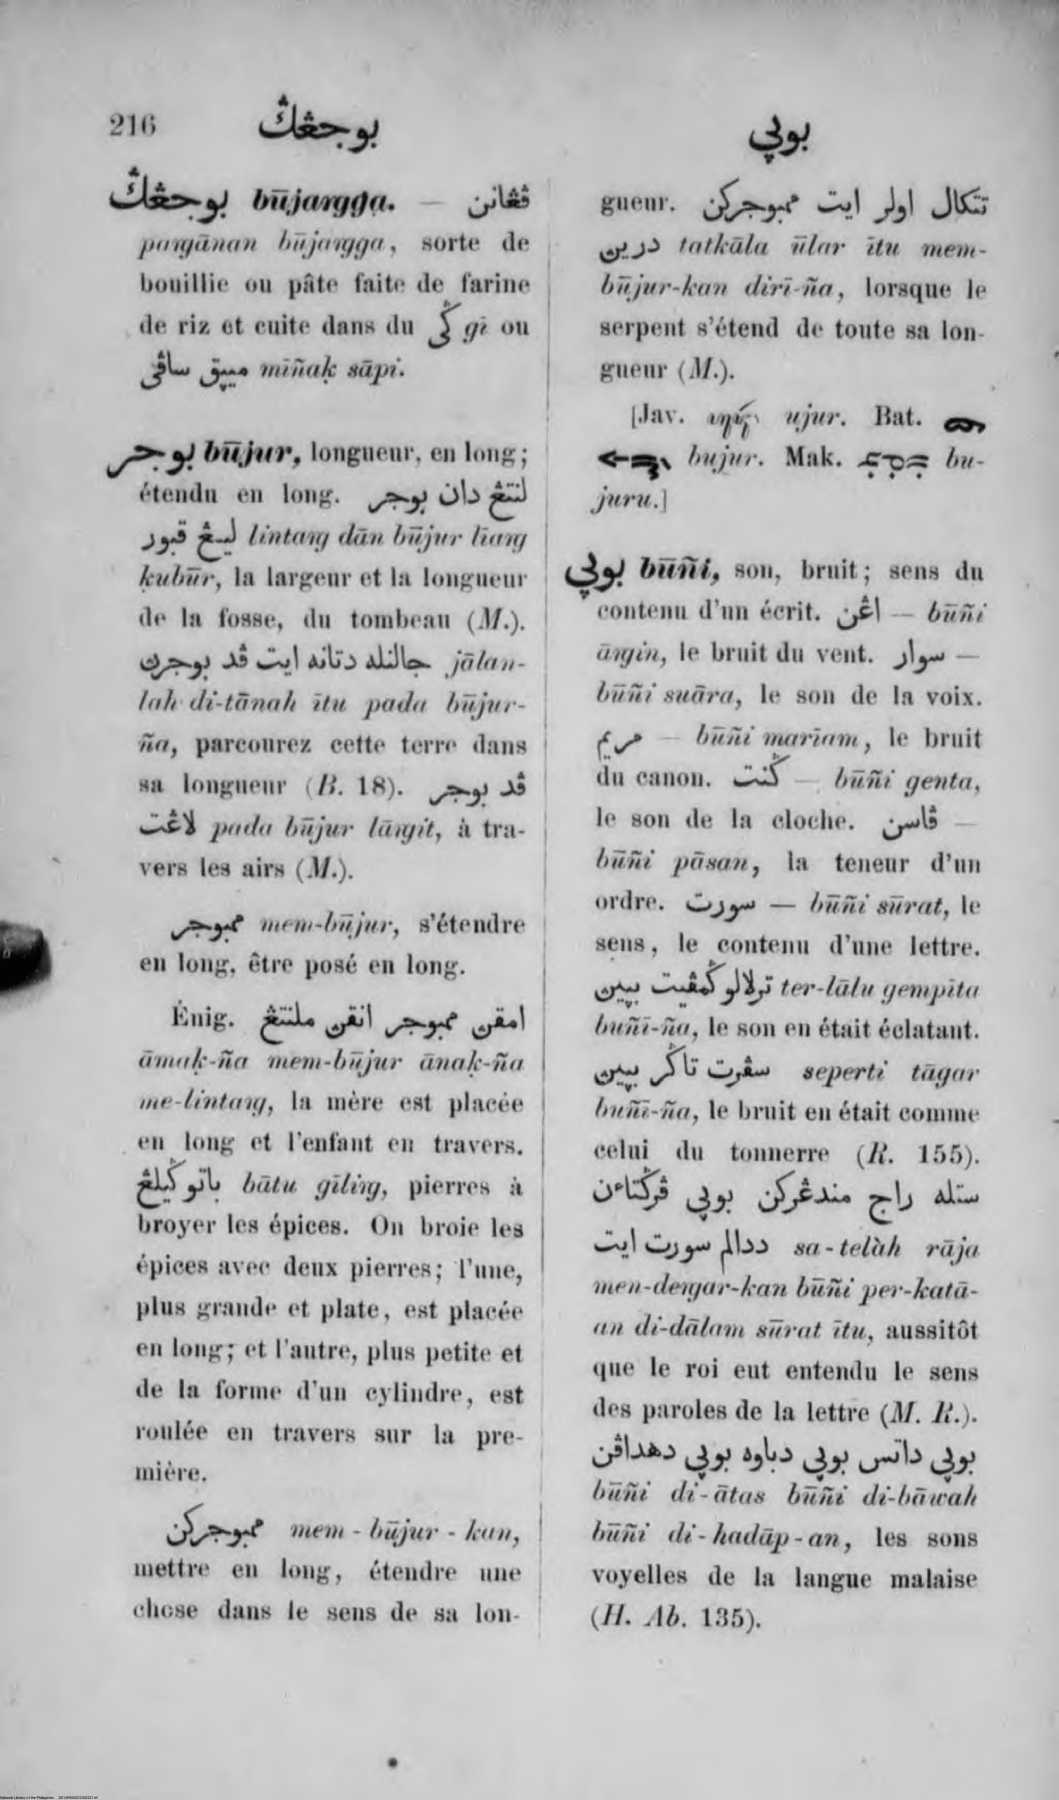 216 بوجڠݢ
بوڽي
بوجڠݢ būjaṅgga. — ڤڠانن
paṅgānan būjaṅgga, sorte de
bouillie ou pâte faite de farine
de riz et cuite dans du ݢي gi ou
ميڽق ساڤي mīñaḳ sāpi.
بوجر būjur, longueur, en long;
étendu en long. لنتڠ دان بوجر
ليڠ قبور lintaṅg dān būjur līaṅg
ḳubūr, la largeur et la longueur
de la fosse, du tombeau (M.).
جالنله دتانه ايت ڤد بوجرڽ jālan-
lah di-tānah ītu pada būjur-
ña, parcourez cette terre dans
sa longueur (R. 18). ڤد بوجر
لاڠت pada būjur lāṅgit, à tra-
vers les airs (M.).
ممبوجر mem-būjur, s'étendre
en long, être posé en long.
Énig. امقڽ ممبوجر انقڽ ملنتڠ
āmaḳ-ña mem-būjur ānaḳ-ña
me-lintaṅg, la mère est placée
en long et l'enfant en travers.
باتو ݢيلڠ bātu gīliṅg, pierres à
broyer les épices. On broie les
épices avec deux pierres; l'une,
plus grande et plate, est placée
en long; et l'autre, plus petite et
de la forme d'un cylindre, est
roulée en travers sur la pre-
mière.
ممبوجركن mem-būjur-kan,
mettre en long, étendre une
chose dans le sens de sa lon-
gueur. تتكال اولر ايت ممبوجركن
دريڽ tatkāla ūlar ītu mem-
būjur-kan dirī-ña, lorsque le
serpent s'étend de toute sa lon-
gueur (M.).
[Jav. ujur. Bat.
bujur. Mak. bu-
juru.]
بوڽي būñi, son, bruit; sens du
contenu d'un écrit. اڠن — būñi
āṅgin, le bruit du vent. سوار —
būñi suāra, le son de la voix.
مريم — būñi marīam, le bruit
du canon. ݢنت — būñi genta,
le son de la cloche. ڤاسن —
būñi pāsan, la teneur d'un
ordre. سورت — būñi sūrat, le
sens, le contenu d'une lettre.
ترلالو ݢمڤيت بڽيڽ ter-lālu gempīta
buñī-ña, le son en était éclatant.
سڤرت تاݢر بڽيڽ seperti tāgar
buñī-ña, le bruit en était comme
celui du tonnerre (R. 155).
ستله راج مندڠركن بوڽي ڤركتاءن
ددالم سورت ايت sa-telàh rāja
men-deṅgar-kan būñi per-katā-
an di-dālam sūrat ītu, aussitôt
que le roi eut entendu le sens
des paroles de la lettre (M. R.).
بوڽي داتس بوڽي دباوه بوڽي دهداڤن
būñi di-ātas būñi di-bāwah
būñi di-hadāp-an, les sons
voyelles de la langue malaise
(H. Ab. 135).